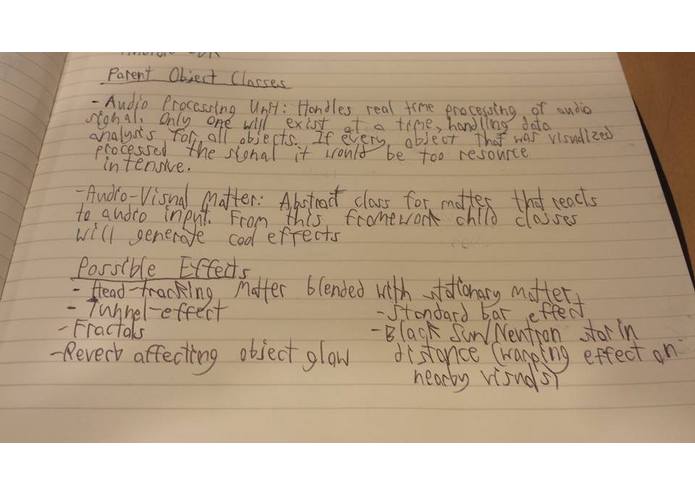 Parent Object Classes
- Audio Processing Unit: Handles real time processing of audio
signal. Only one will exist at a time, handling data
analysis for all objects. If every object that was visualized
processed the signal it would be too resource
intensive.
- Audio-Visual Matter: Abstract class for matter that reacts
to audio input. From this framework child classes
will generate cool effects
Possible Effects
- Head-tracking matter blended with stationary matter
- Tunnel-effect
- Standard bar effect
- Fractals
- Black Sun/Neutron star in
distance (warping effect on
nearby visuals)
- Reverb affecting object glow